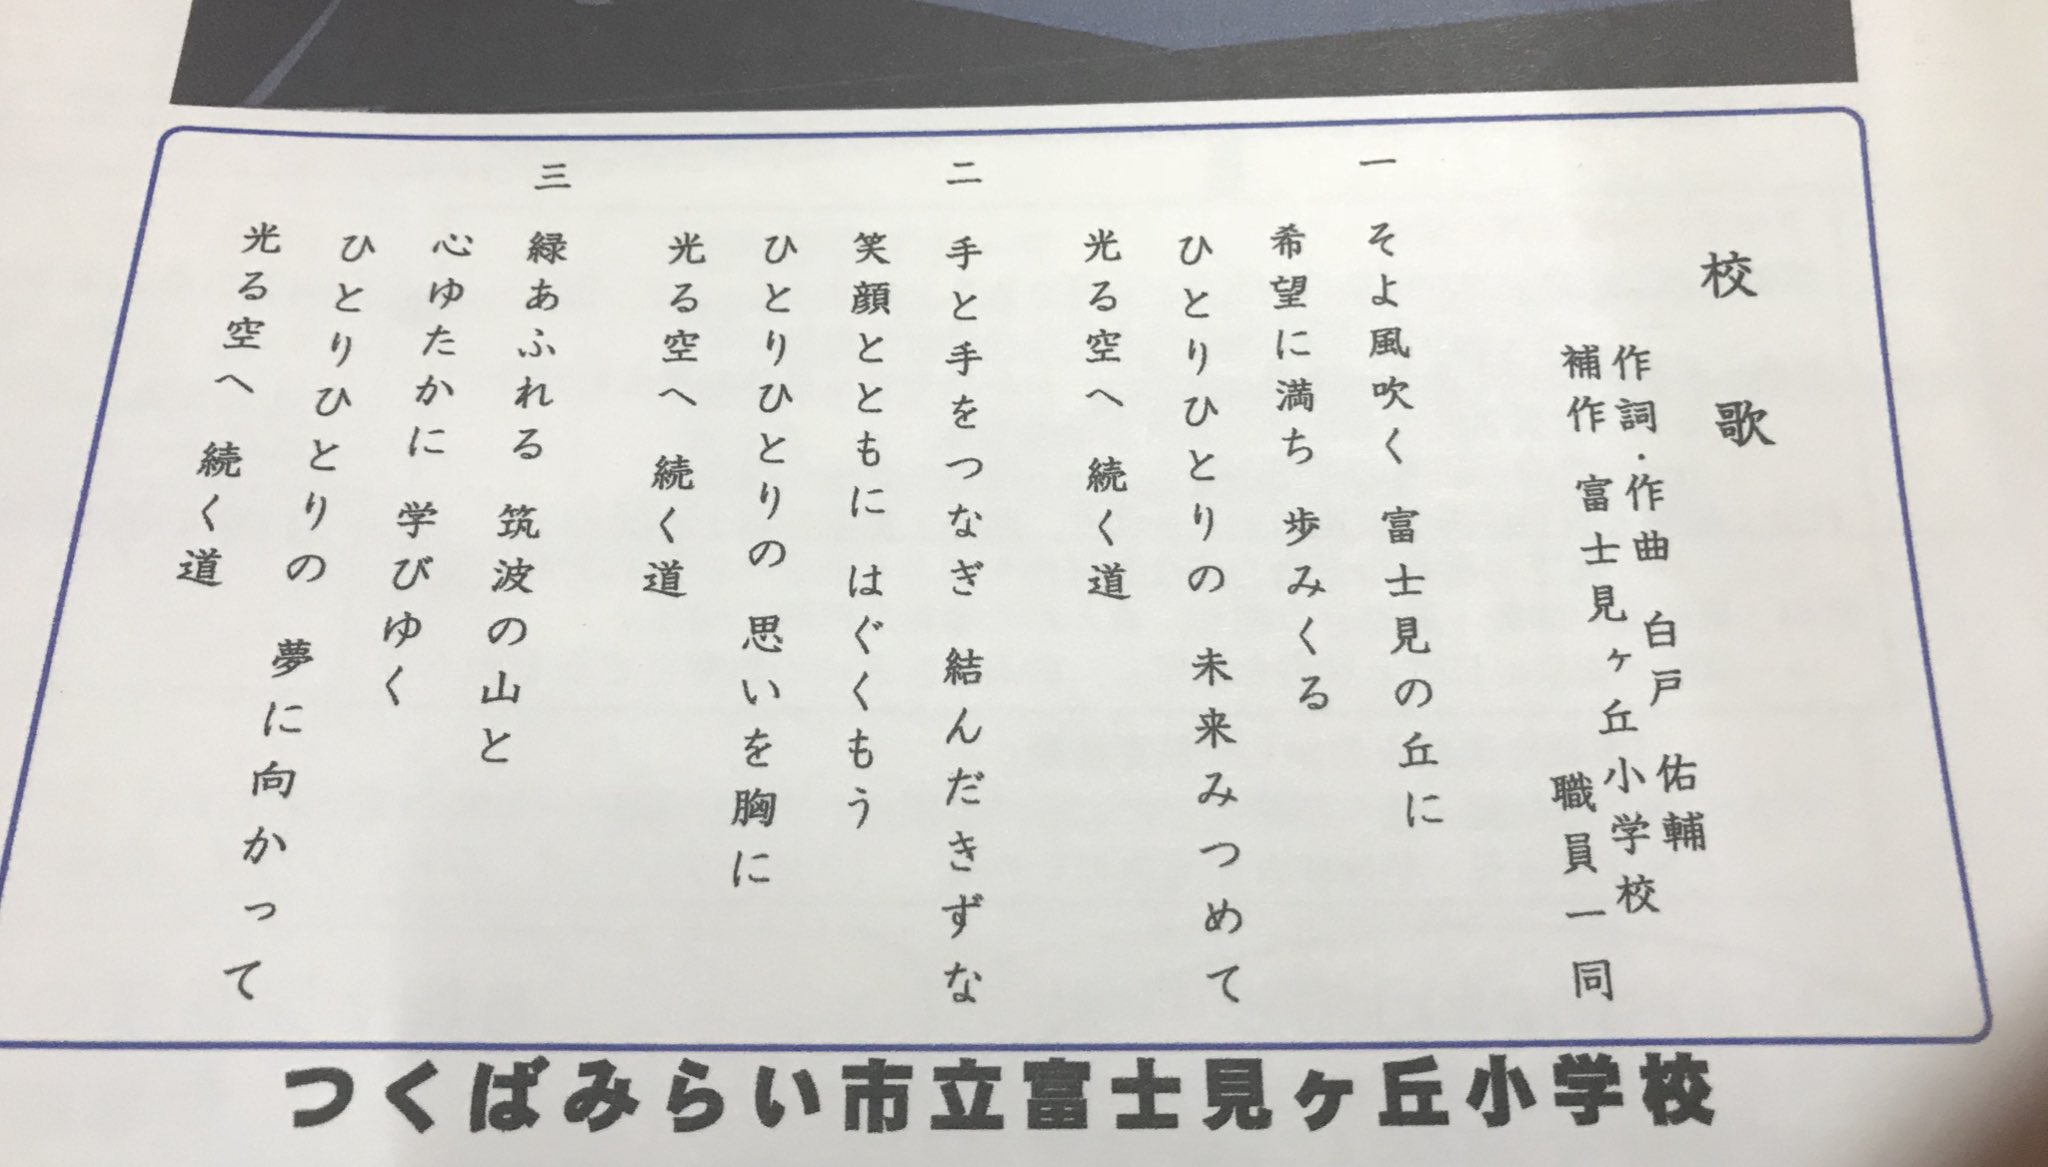 校歌
作詞・作曲 白戸 佑輔
補作 富士見ヶ丘小学校
職員一同
一 そよ風吹く 富士見の丘に
希望に満ち 歩みくる
ひとりひとりの 未来みつめて
光る空へ 続く道
二 手と手をつなぎ 結んだきずな
笑顔とともに はぐくもう
ひとりひとりの 思いを胸に
光る空へ 続く道
三 緑あふれる 筑波の山と
心ゆたかに 学びゆく
ひとりひとりの 夢に向かって
光る空へ 続く道
つくばみらい市立富士見ヶ丘小学校